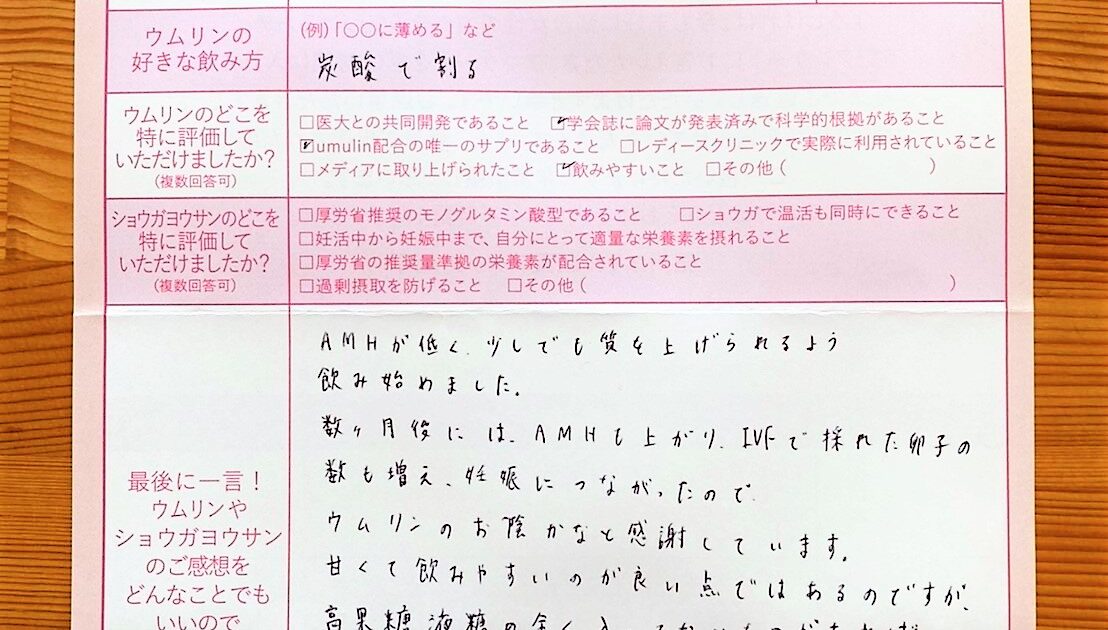 ウムリンの
好きな飲み方
(例)「〇〇に薄める」など
炭酸で割る
ウムリンのどこを
特に評価して
いただけましたか?
(複数回答可)
□医大との共同開発であること ☑学会誌に論文が発表済みで科学的根拠があること
☑umulin配合の唯一のサプリであること □レディースクリニックで実際に利用されていること
□メディアに取り上げられたこと ☑飲みやすいこと □その他( )
ショウガヨウサンのどこを
特に評価して
いただけましたか?
(複数回答可)
□厚労省推奨のモノグルタミン酸型であること □ショウガで温活も同時にできること
□妊活中から妊娠中まで、自分にとって適量な栄養素を摂れること
□厚労省の推奨量準拠の栄養素が配合されていること
□過剰摂取を防げること □その他( )
最後に一言!
ウムリンや
ショウガヨウサン
のご感想を
どんなことでも
いいので
AMHが低く、少しでも質を上げられるよう
飲み始めました。
数ヶ月後には、AMHも上がり、IVFで採れた卵子の
数も増え、妊娠につながったので、
ウムリンのお陰かなと感謝しています。
甘くて飲みやすいのが良い点ではあるのですが、
高果糖液糖の全く入っていないものがあれば